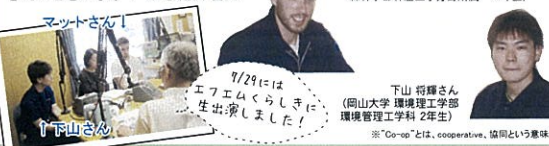 マットさん↓
↑下山さん
7/29には
エフエムくらしきに
生出演しました!
下山 将輝さん
(岡山大学 環境理工学部
環境管理工学科 2年生)
※"Co-op"とは、cooperative、協同という意味